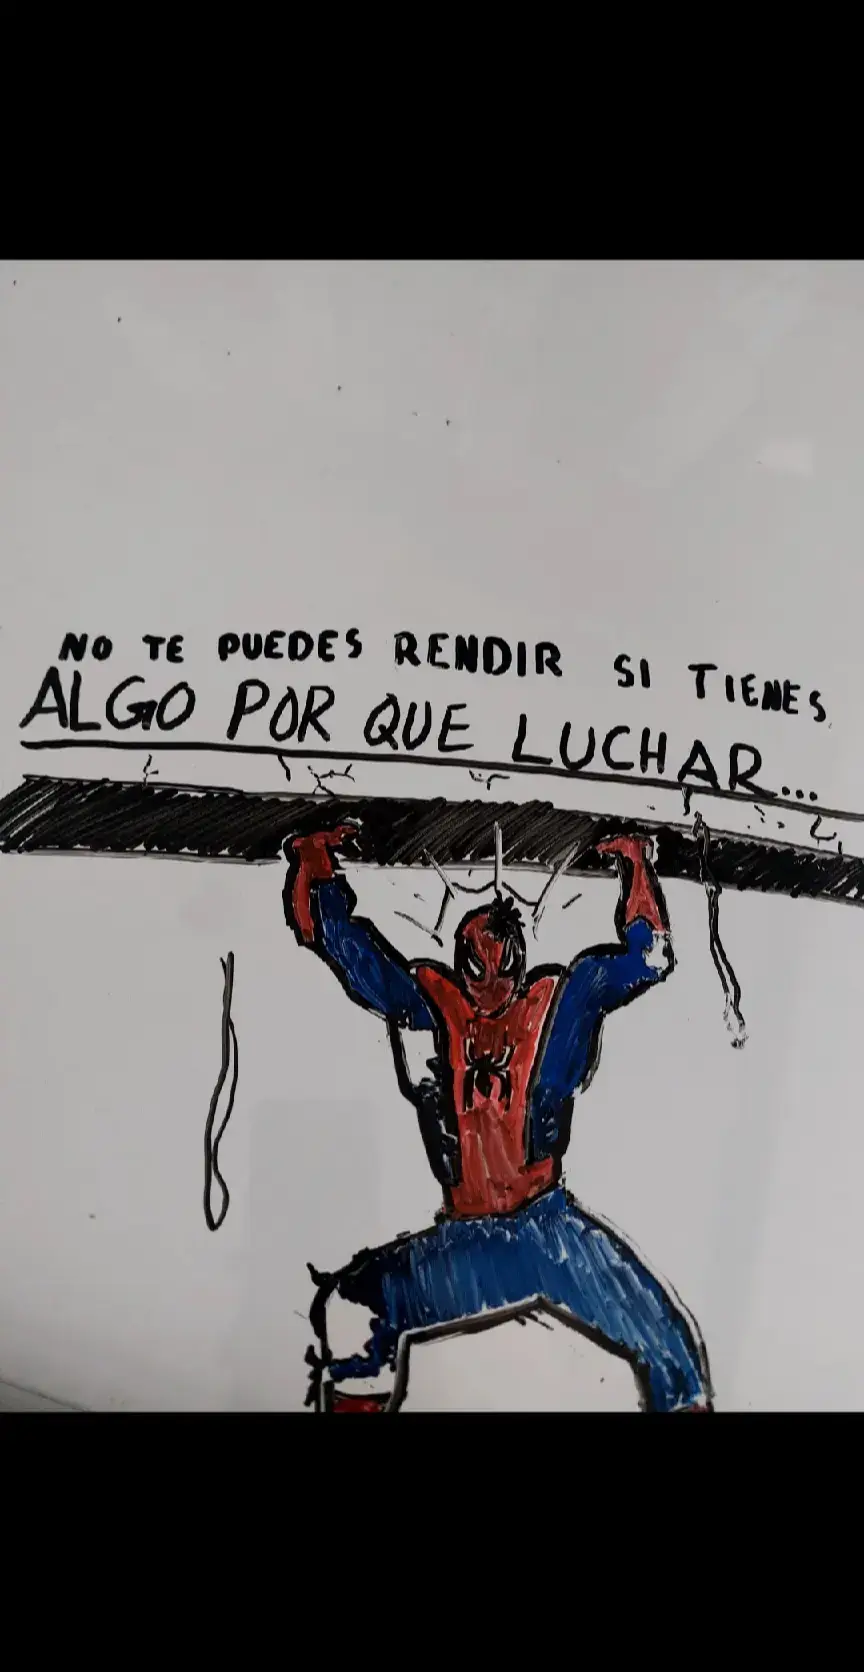 NO TE PUEDES RENDIR SI TIENES
ALGO POR QUE LUCHAR...